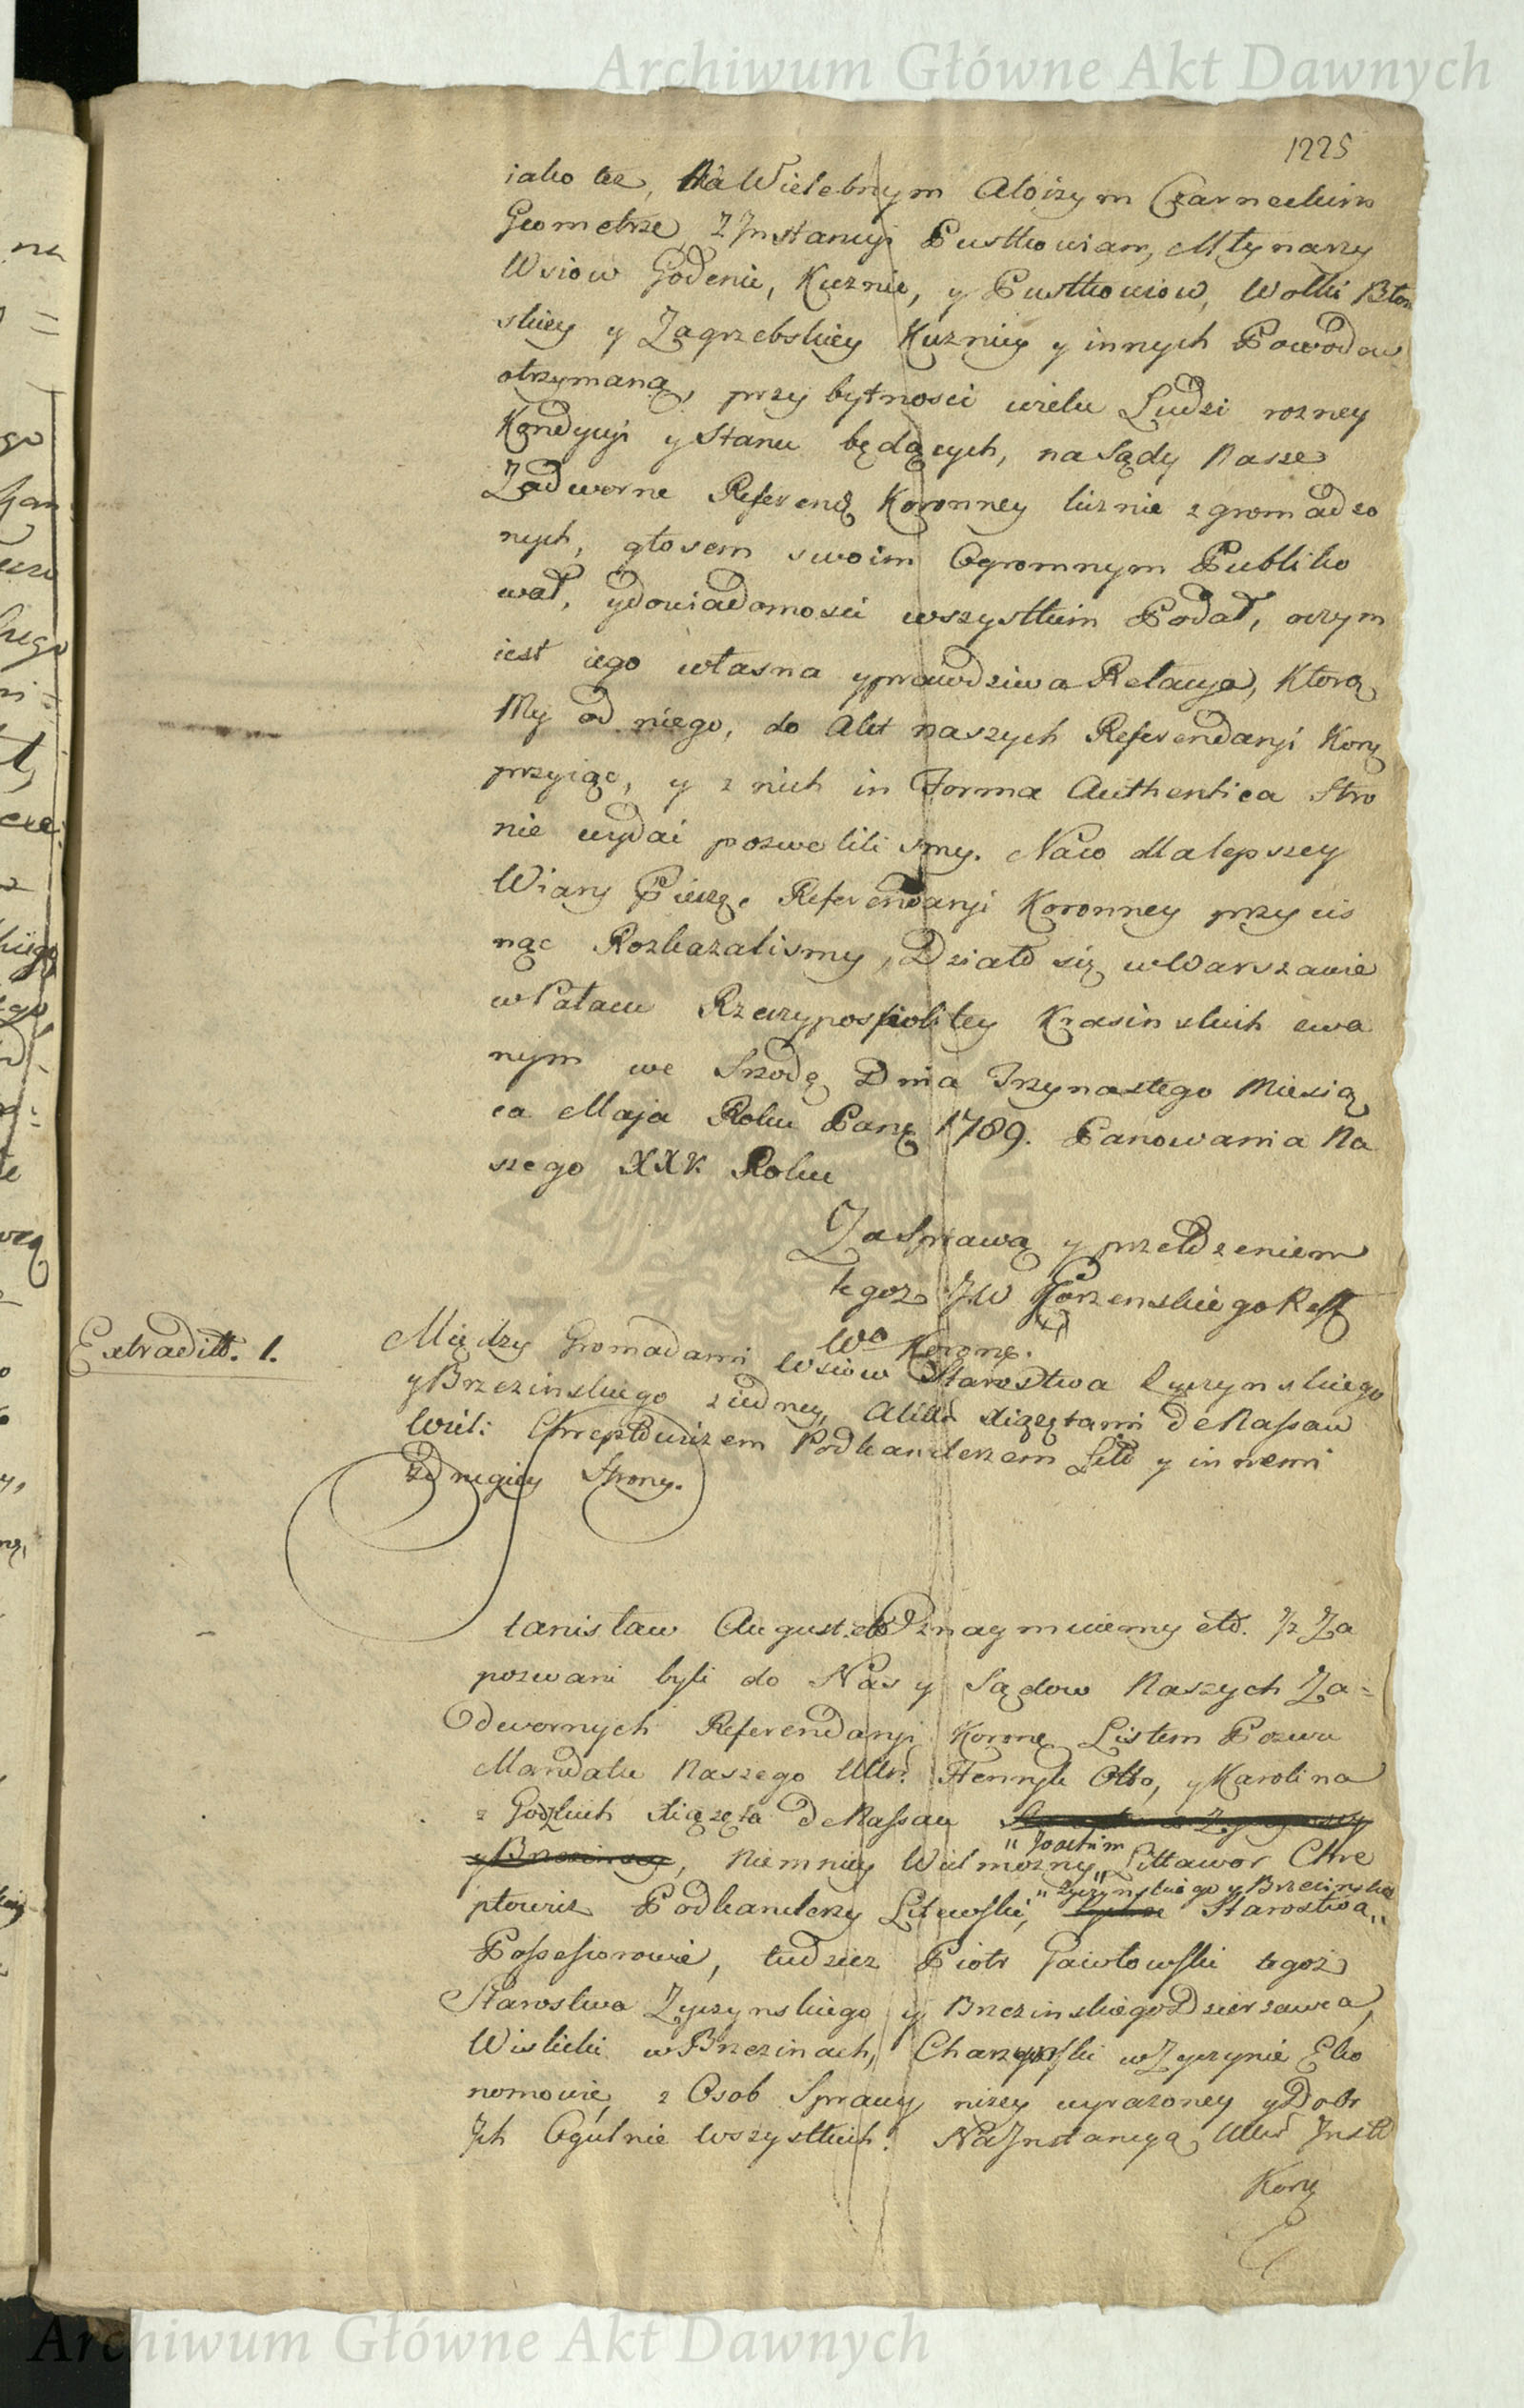 Archiwum Główne Akt Dawnych
1225
iako też, Na Wielebnym Aloizym Czarneckim
Geometrze, z Jnstancyi Pustkowian, Młynarzy
Wsiow Godenie, Kuznie, y Pustkowiow, Wolki Błon
skiey y Zagrzebskiey Kuzniey y innych Powodow
otrzymaną, przy bytnosci wielu Ludzi rozney
Kondycyi y Stanu będących, na Sądy Nasze
Zadworne Referend Koronney licznie zgromadzo
nych, głosem swoim Ogromnym Publiko
wał, y do wiadomosci wszystkim Podał, oczym
iest iego własna y prawdziwa Relacya, Ktorą
My od niego, do Akt naszych Referendaryi Korą
przyiąc, y z nich in Forma Authentica Stro
nie wydai pozwolilismy. Naco dla lepszey
Wiary Pieczęc Referendaryi Koronney przycis
nąc Rozkazalismy, Działo się w Warszawie
w Pałacu Rzeczypospolitey Krasinskich zwa
nym we Srzodę Dnia Trzynastego Miesią
ca Maja Roku Pang 1789. Panowania Na
szego XXV. Roku
Za Sprawą y przełożeniem
tegoz JW Gorzenskiego Reff
Wo Koronę.
Extradittt. 1.
Między Gromadami Wsiow Starostwa Zyczynskiego
y Brzezinskiego z iedney, a Uttr Xiążętami de Nassau
Wiel: Chreptowiczem Podkanclerzem Litt y innemi
z drugiey Strony.
Stanisław August. etc Oznaymuiemy etc. Jż Za
pozwani byli do Nas y Sądow Naszych Za=
dwornych Referendaryi Koronę Listem Pozwu
Mandatu Naszego Uttr. Henryk Otto, y Karolina
z Godzkich Xiążęta de Nassau
, Niemniey Wielmozny " Joachim " Littawor Chre
ptowicz Podkanclerzy Litewski, " Zyczynskiego y Brzezinskie Starostwa "
Possessorowie, tudziez Piotr Gawłowski tegoż
Starostwa Zyczynskiego y Brzezinskiego Dzierzawca,
Wislicki w Brzezinach, Charzewski w Zyczynie Eko
nomowie, z Osob Sprawy nizey wyrazoney y Dobr
Jch Ogulnie Wszystkich. Na Jnstancyą Uttr Jnstt
Korę
Archiwum Główne Akt Dawnych